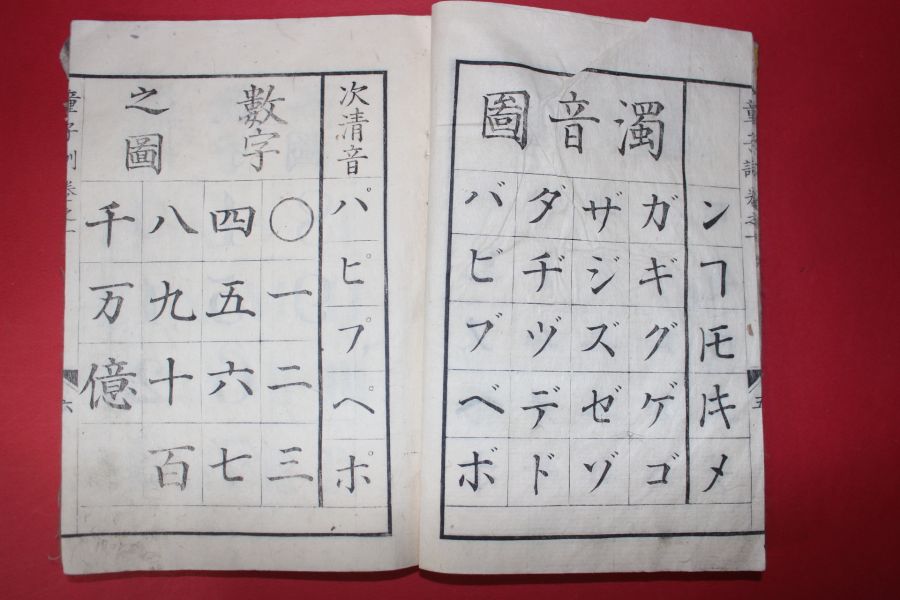 童子訓 卷之一
五
ンヿ𪜈メ
濁音圖
ガギグゲゴ
ザジズゼゾ
ダヂヅデド
バビブベボ
次清音
パピプペポ
數字
之圖
〇一二三
四五六七
八九十百
千万億
童子訓 卷之一
六